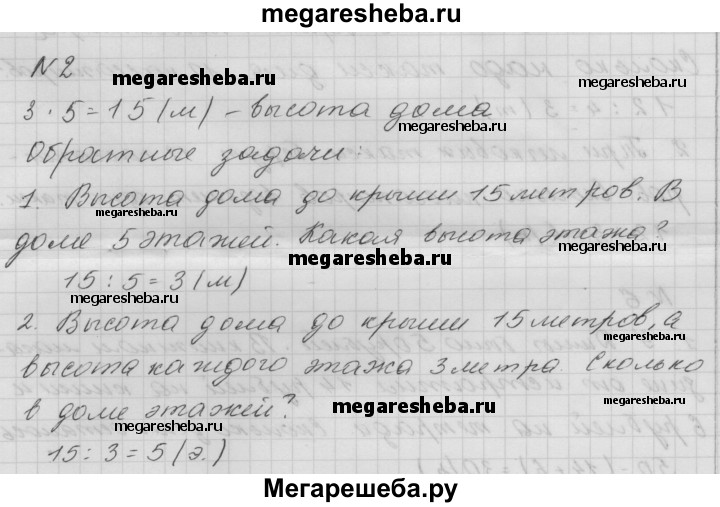 megaresheba.ru
N 2
megaresheba.ru
3 · 5 = 15 (м) – высота дома
megaresheba.ru
Обратные задачи:
1. Высота дома до крыши 15 метров. В
megaresheba.ru
доме 5 этажей. Какая высота этажа?
megaresheba.ru
15 : 5 = 3 (м)
megaresheba.ru
megaresheba.ru
2. Высота дома до крыши 15 метров, а
megaresheba.ru
высота каждого этажа 3 метра. Сколько
в доме этажей?
megaresheba.ru
megaresheba.ru
15 : 3 = 5 (э.)
Мегарешеба.ру